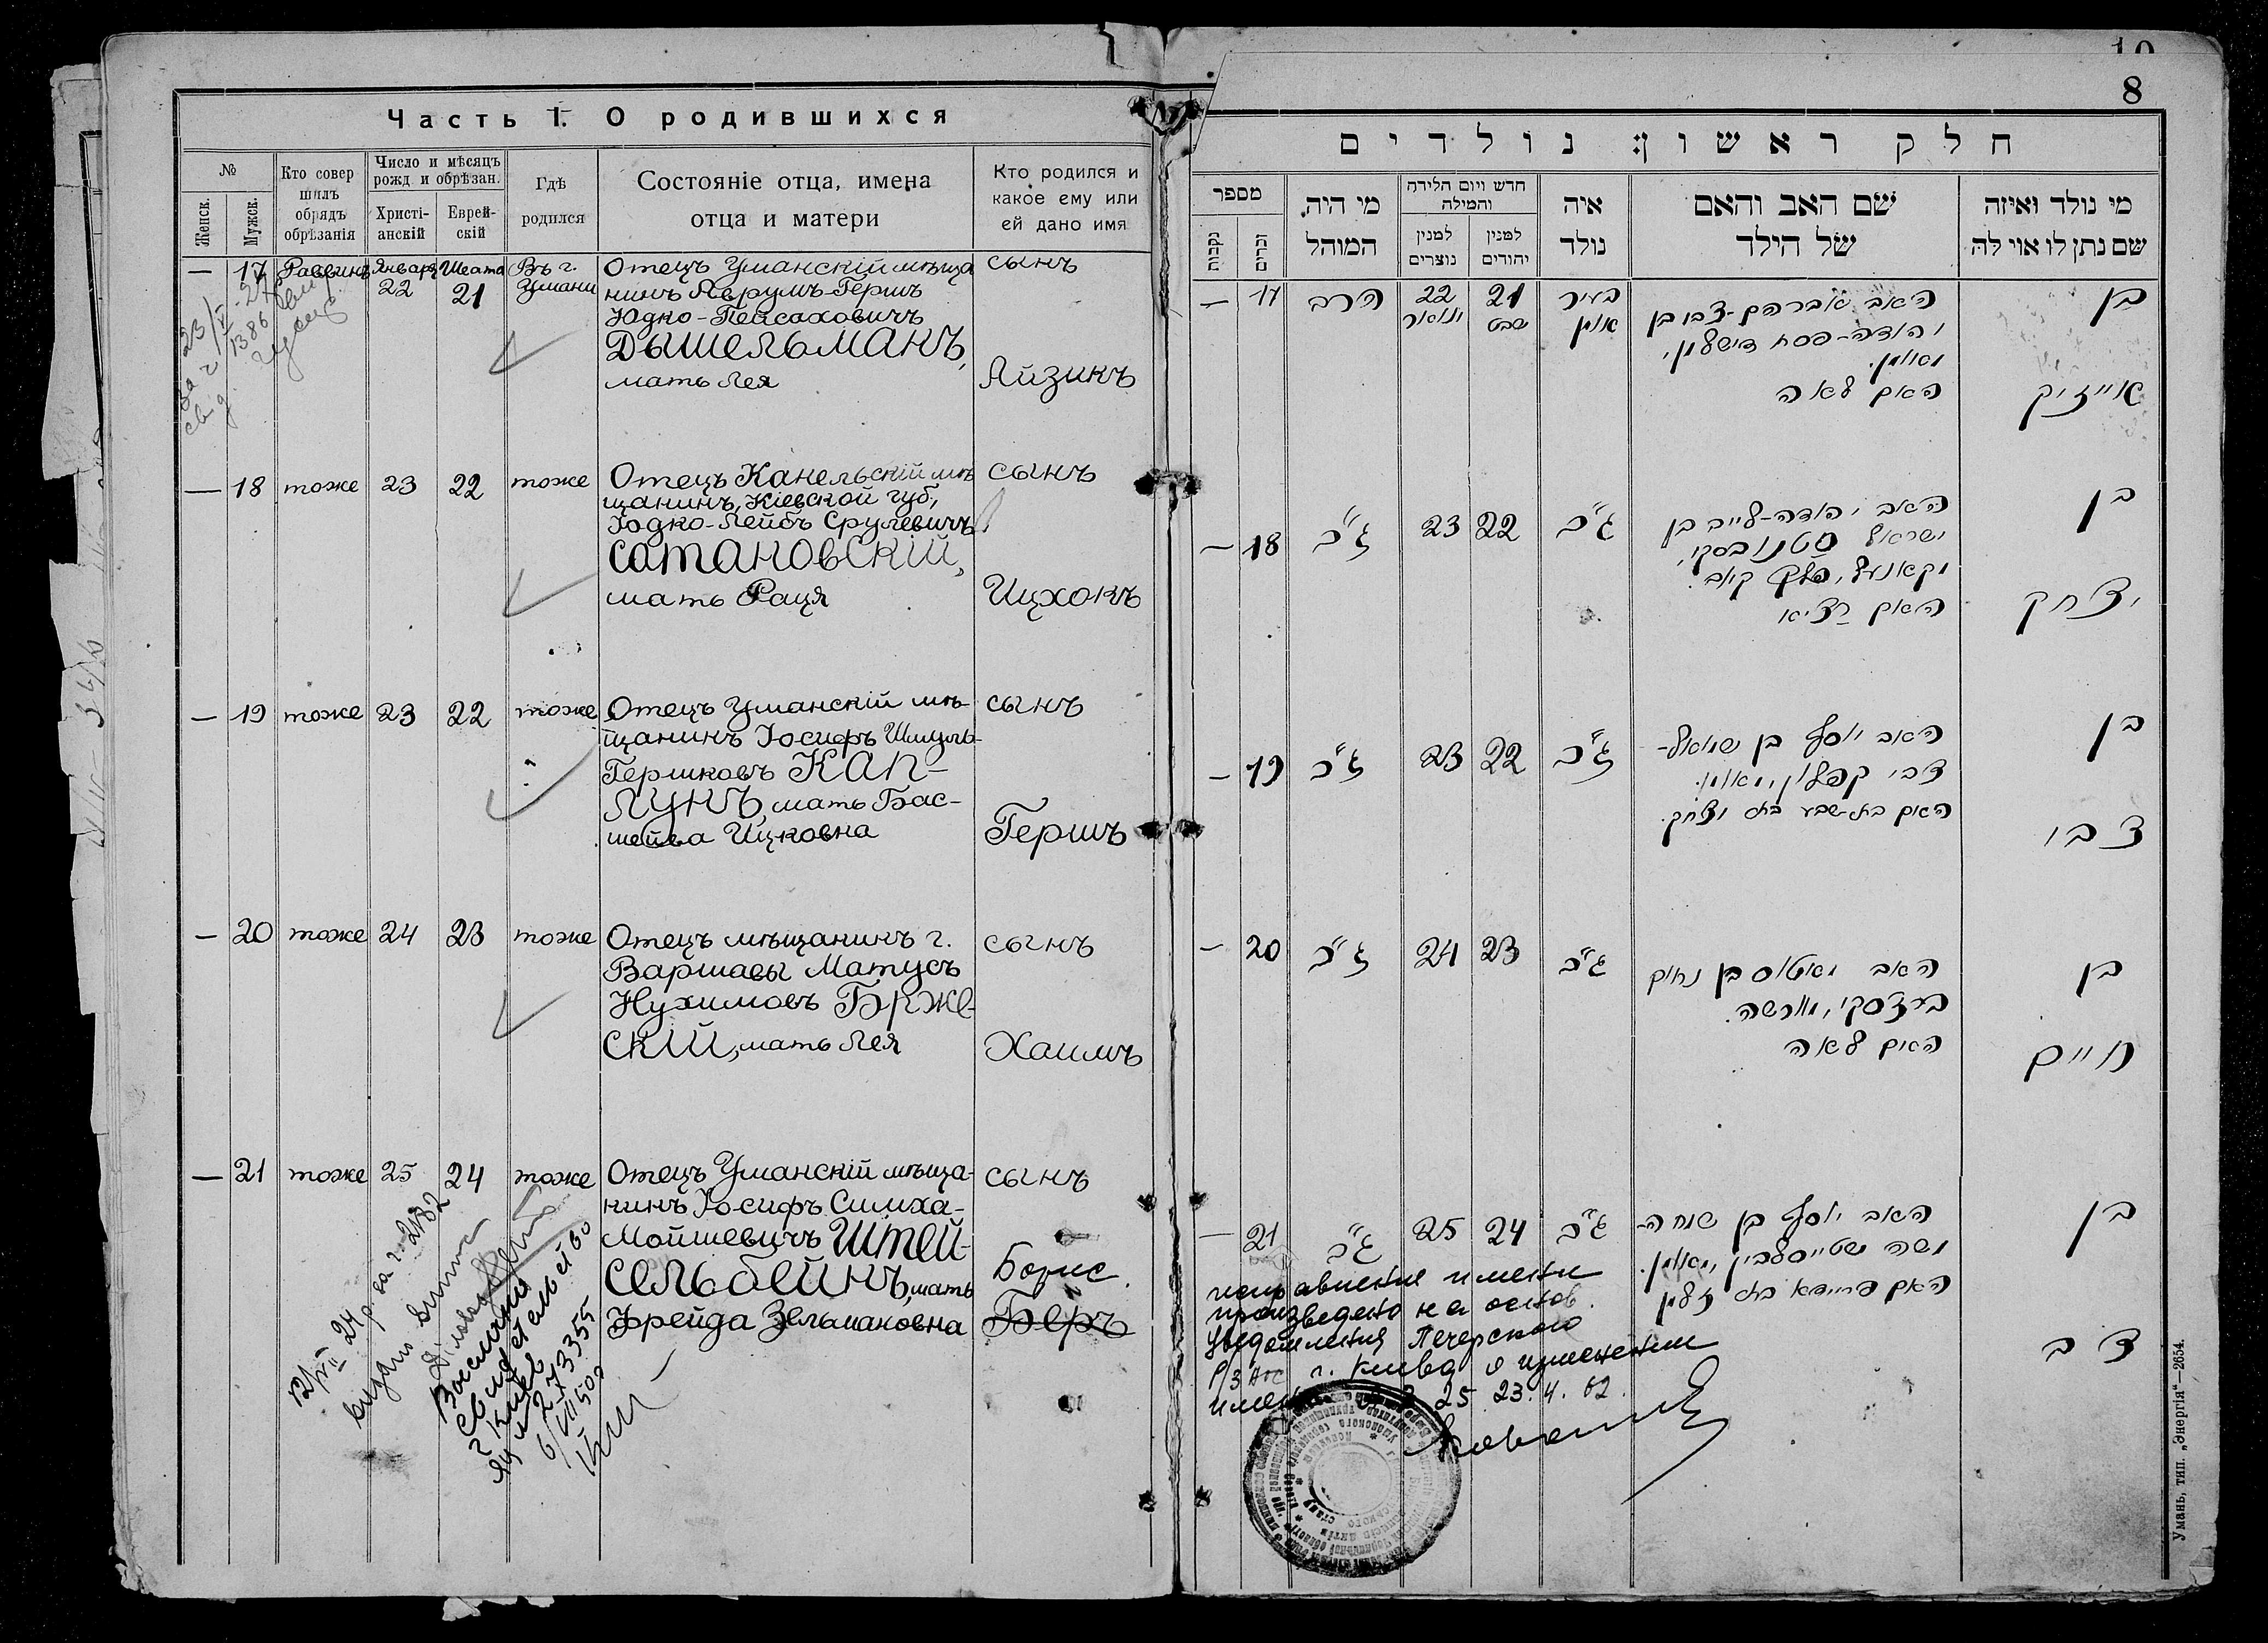 10
8
Часть I. О родившихся
№
Женск.
Мужск.
Кто совер
шилъ
обрядъ
обрѣзанія
Число и мѣсяцъ
рожд и обрѣзан.
Христі-
анскій
Еврей-
скій
Гдѣ
родился
Состояніе отца, имена
отца и матери
Кто родился и
какое ему или
ей дано имя
— 17 Раввинъ Января 22 Шевата 21 Въ г. Умани
Отецъ Уманскій мѣща
нинъ Аврумъ-Гершъ
Юдко-Пейсаховичъ
Дышельманъ,
мать Лея
сынъ
Айзикъ
— 18 тоже 23 22 тоже
Отецъ Канельскій мѣ
щанинъ, Кіевской губ.,
Юдко-Лейбъ Срулевичъ
Сатановскій,
мать Рася
сынъ
Ицхокъ
— 19 тоже 23 22 тоже
Отецъ Уманскій мѣ-
щанинъ Іосифъ Шмуль-
Гершковъ Кап-
лунъ, мать Бас-
шейва Ицковна
сынъ
Гершъ
— 20 тоже 24 23 тоже
Отецъ мѣщанинъ г.
Варшавы Матусъ
Нухимовъ Брже-
скій, мать Лея
сынъ
Хаимъ
— 21 тоже 25 24 тоже
Отецъ Уманскій мѣща-
нинъ Іосифъ Симха-
Мойшевичъ Штей-
сельбейнъ, мать
Фрейда Зельмановна
сынъ
Борис.
Беръ
חלק ראשון: נולדים
מספר
נקבות
זכרים
מי היה
המוהל
חדש ויום הלידה
והמילה
למנין
נוצרים
למנין
יהודים
איה
נולד
שם האב והאם
של הילד
מי נולד ואיזה
שם נתן לו אוי לה
— 17 הרב 22 ינואר 21 שבט בעיר אומן
האב אברהם-צבי בן
יהודה-פסח דישלמן,
מאומן.
האם לאה
בן
אייזיק
— 18 ג״כ 23 22 ג״כ
האב יהודה-לייב בן
ישראל סטנובסקי,
האם רציא
בן
יצחק
— 19 ג״כ 23 22 ג״כ
האב יוסף בן שמואל-
צבי קפלון, מאומן.
האם בת-שבע בת יצחק.
בן
צבי
— 20 ג״כ 24 23 ג״כ
האב מאטוס בן נחום
ברזסקי, מורשה.
האם לאה
בן
חיים
— 21 ג״כ 25 24 ג״כ
האב יוסף בן שמחה-
משה שטייסלביין, מאומן.
האם פריידא בת זלמן
בן
דב
исправление имени
произведено на основ.
уведомления Печерского
р/з АГС г. Киева о изменении
имени № 25 23.4.62.
Умань, тип. „Энергія“—2654.